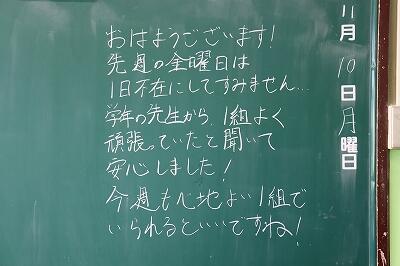 おはようございます!
先週の金曜日は
1日不在にしてすみません…
学年の先生から、1組よく
頑張っていたと聞いて
安心しました!
今週も心地よい1組で
いられるといいですね!
11月10日月曜日